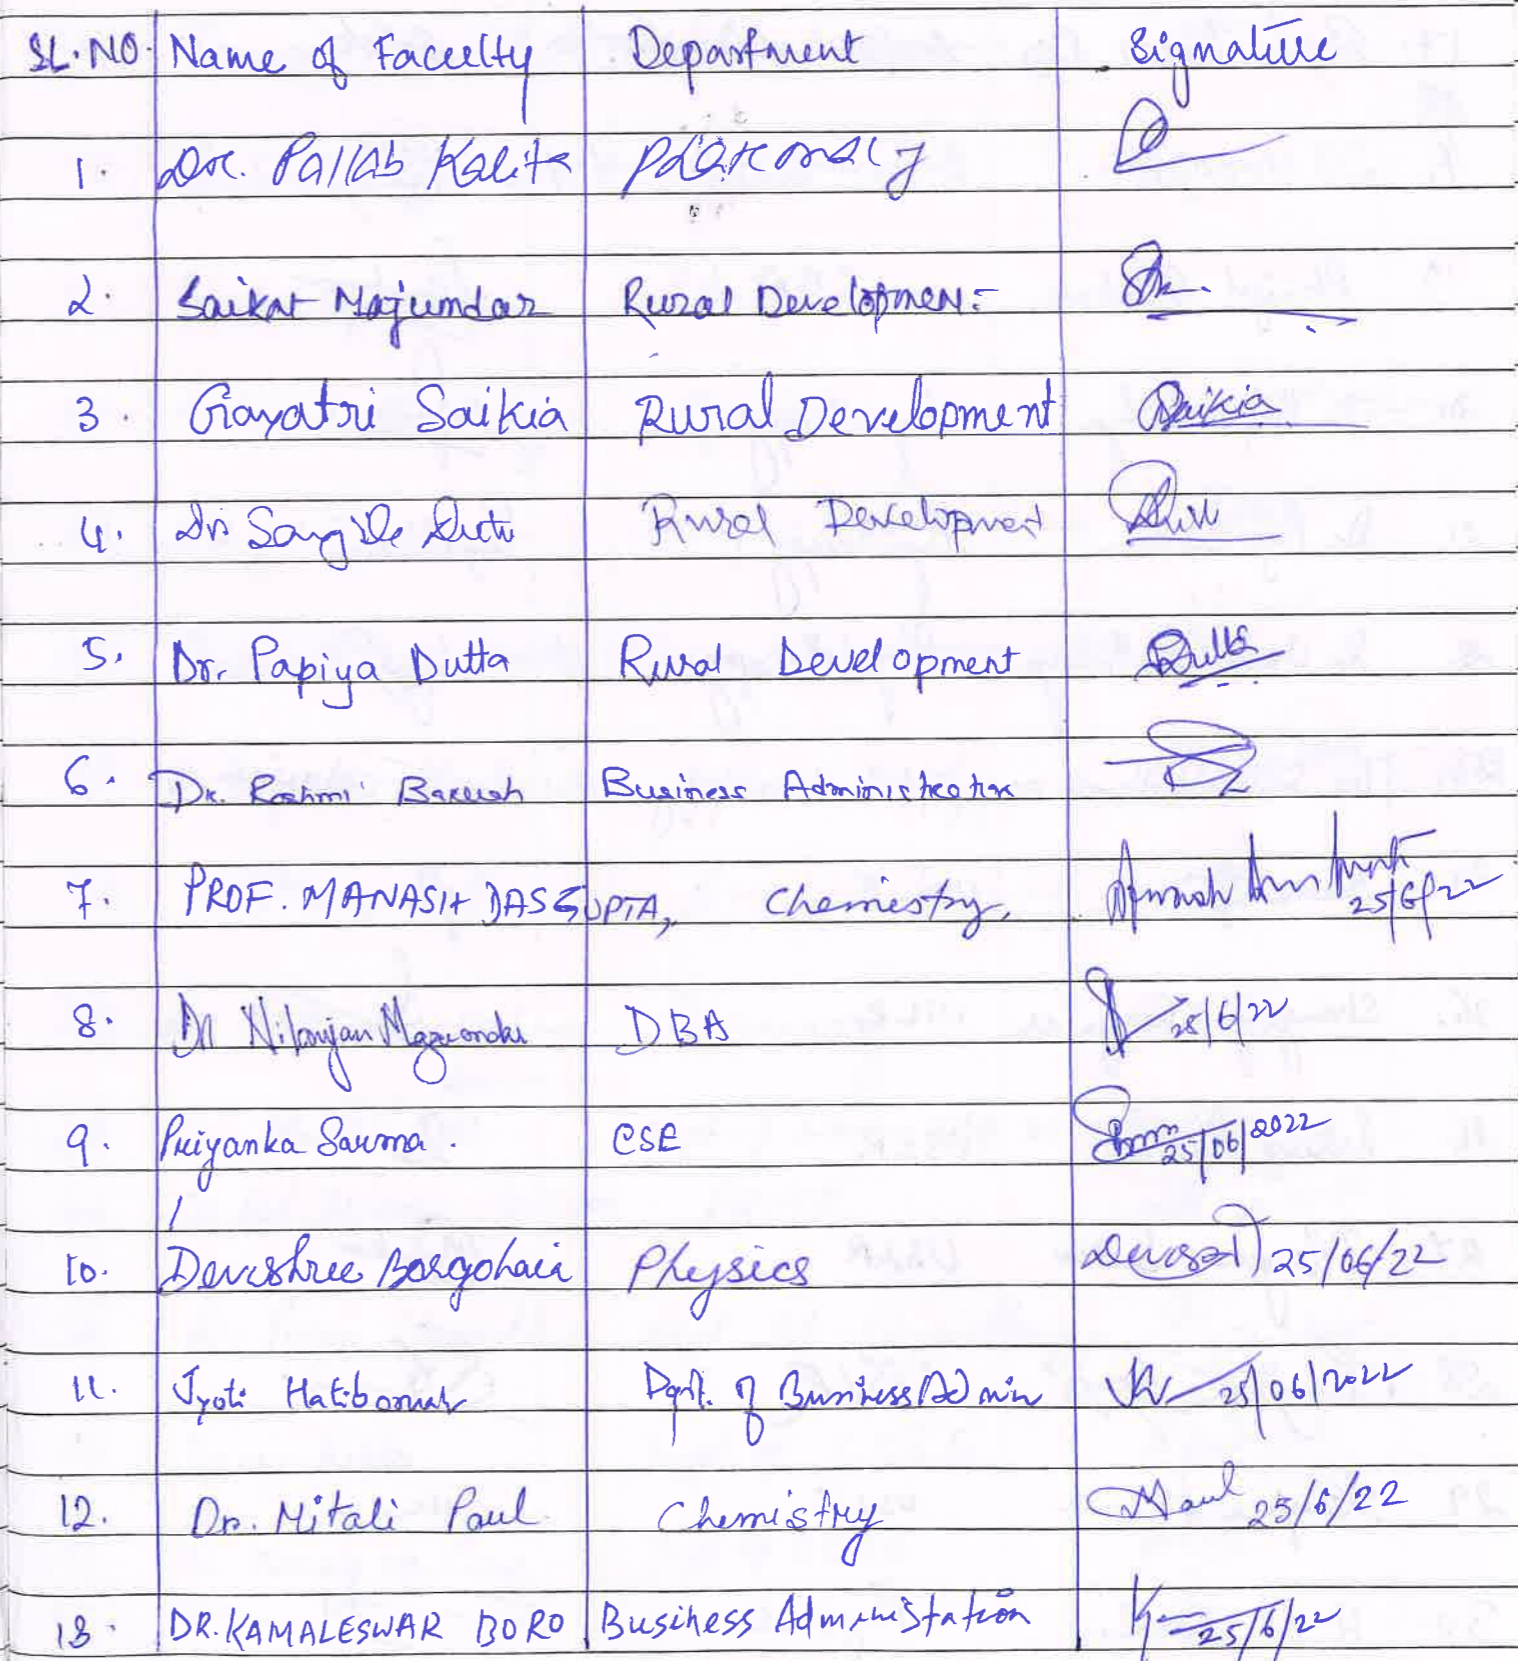 SL.NO. Name of Faculty Department Signature
1. Dr. Pallab Kalita Pharmacy
2. Saikat Majumdar Rural Development
3. Gayatri Saikia Rural Development Saikia
4. Dr. Rural Development
5. Dr. Papiya Dutta Rural Development Dutta
6. Dr. Rashmi Baruah Business Administration
7. PROF. MANASH DASGUPTA, Chemistry, 25/6/22
8. Dr Nilanjan Mazumdar DBA 25/6/22
9. Priyanka Sarma. CSE 25/06/2022
10. Devashree Borgohain Physics 25/06/22
11. Jyoti Hatiboruah Dept. of Business Admin 25/06/2022
12. Dr. Mitali Paul Chemistry Paul 25/6/22
13. DR. KAMALESWAR BORO Business Administation 25/6/22